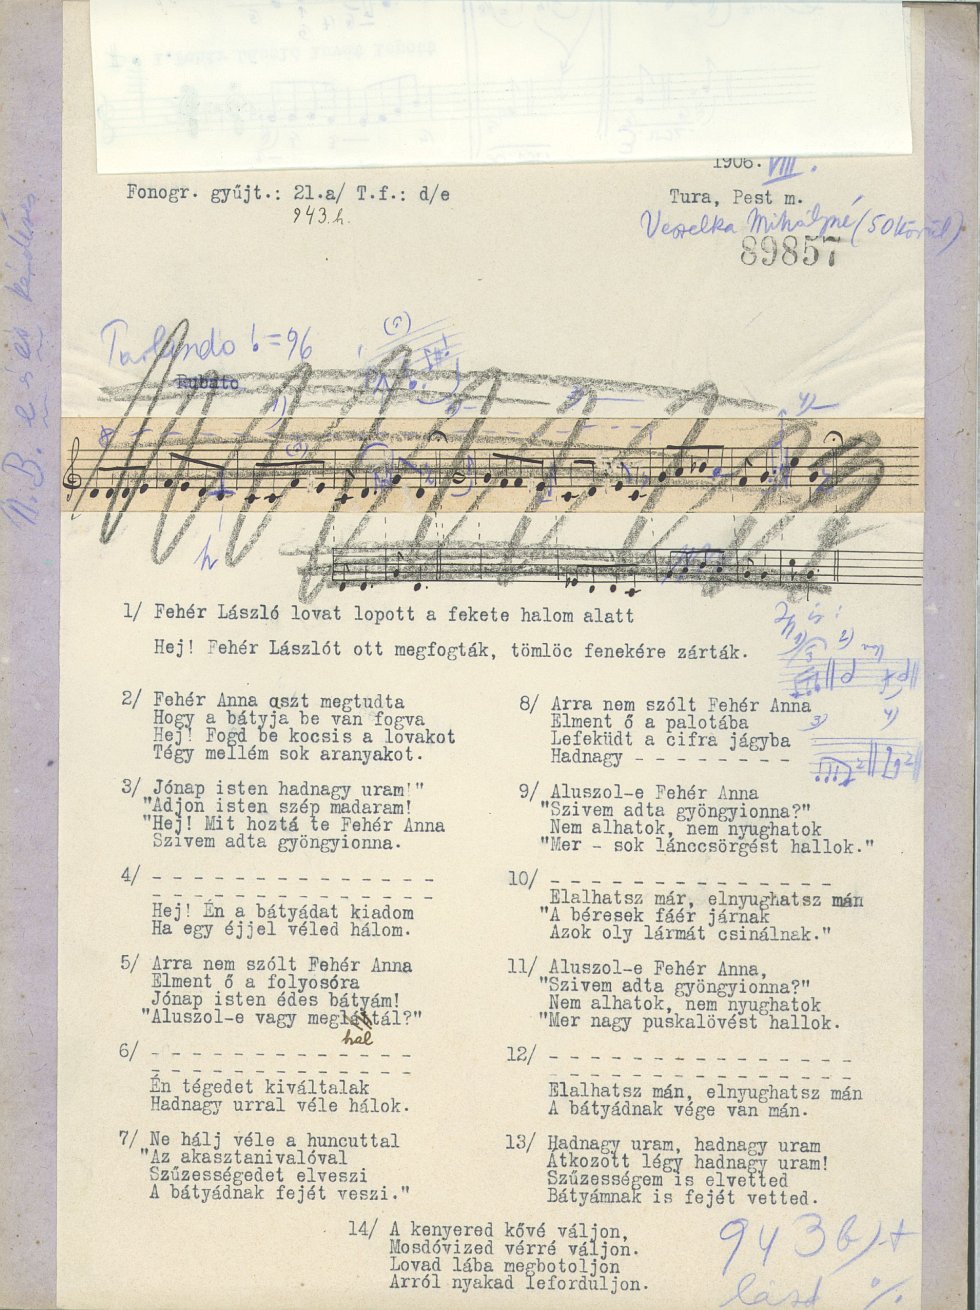 1906. VIII.
Fonogr. gyűjt.: 21.a/ T.f.: d/e
943 b.
Tura, Pest m.
Veszelka Mihályné (50 körül)
89857
Parlando = 96
Rubato
1/ Fehér László lovat lopott a fekete halom alatt
Hej! Fehér Lászlót ott megfogták, tömlöc fenekére zárták.
2/ Fehér Anna aszt megtudta
Hogy a bátyja be van fogva
Hej! Fogd be kocsis a lovakot
Tégy mellém sok aranyakot.
3/ Jónap isten hadnagy uram!"
"Adjon isten szép madaram!
"Hej! Mit hoztá te Fehér Anna
Szivem adta gyöngyionna.
4/ - - - - - - - - - - - - - -
- - - - - - - - - - - - - -
Hej! Én a bátyádat kiadom
Ha egy éjjel véled hálom.
5/ Arra nem szólt Fehér Anna
Elment ő a folyosóra
Jónap isten édes bátyám!
"Aluszol-e vagy megláttál?"
hal
6/ - - - - - - - - - - - - -
- - - - - - - - - - - - -
Én tégedet kiváltalak
Hadnagy urral véle hálok.
7/ Ne hálj véle a huncuttal
"Az akasztanivalóval
Szűzességedet elveszi
A bátyádnak fejét veszi."
8/ Arra nem szólt Fehér Anna
Elment ő a palotába
Lefeküdt a cifra jágyba
Hadnagy - - - - - - - -
9/ Aluszol-e Fehér Anna
"Szivem adta gyöngyionna?"
Nem alhatok, nem nyughatok
"Mer - sok lánccsörgést hallok."
10/ - - - - - - - - - - - - - -
Elalhatsz már, elnyughatsz mán
"A béresek fáér járnak
Azok oly lármát csinálnak."
11/ Aluszol-e Fehér Anna,
"Szivem adta gyöngyionna?"
Nem alhatok, nem nyughatok
"Mer nagy puskalövést hallok.
12/ - - - - - - - - - - - - - - -
- - - - - - - - - - - - - - -
Elalhatsz mán, elnyughatsz mán
A bátyádnak vége van mán.
13/ Hadnagy uram, hadnagy uram
Átkozott légy hadnagy uram!
Szűzességem is elvetted
Bátyámnak is fejét vetted.
14/ A kenyered kővé váljon,
Mosdóvized vérré váljon.
Lovad lába megbotoljon
Arról nyakad leforduljon.
943 b) +